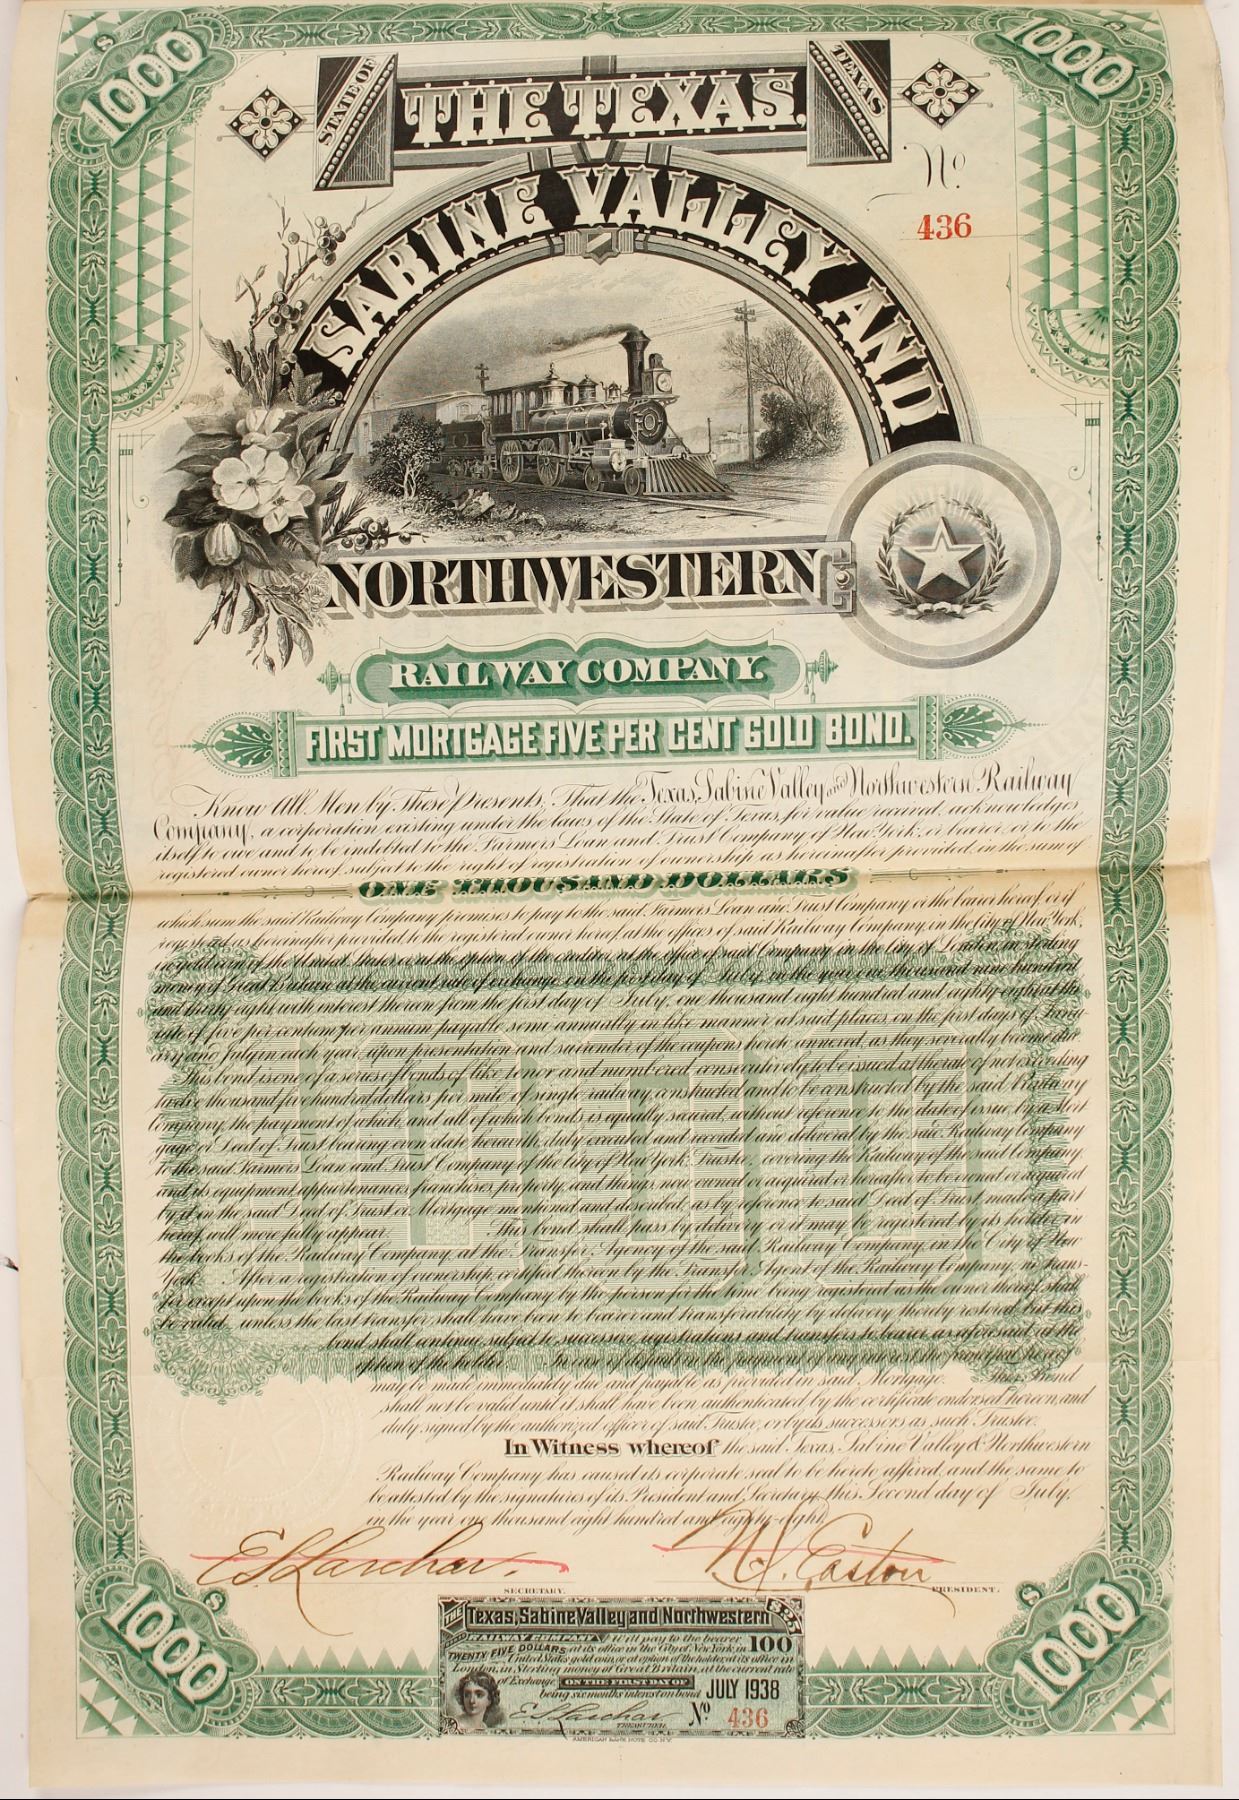 1000
1000
STATE OF
TEXAS
THE TEXAS.
No.
436
SABINE VALLEY AND
NORTHWESTERN
RAILWAY COMPANY.
FIRST MORTGAGE FIVE PER CENT GOLD BOND.
Know All Men by These Presents, That the Texas, Sabine Valley and Northwestern Railway
Company, a corporation existing under the laws of the State of Texas, for value received, acknowledges
itself to owe and to be indebted to the Farmers Loan and Trust Company of New York, or bearer, or to the
registered owner hereof, subject to the right of registration of ownership as hereinafter provided, in the sum of
ONE THOUSAND DOLLARS
which sum the said Railway Company promises to pay to the said Farmers Loan and Trust Company or the bearer hereof, or if
registered as hereinafter provided, to the registered owner hereof, at the offices of said Railway Company, in the City of New York,
in gold coin of the United States, or at the option of the creditor, at the office of said Company, in the City of London, in sterling
money of Great Britain at the current rate of exchange, on the first day of July, in the year one thousand nine hundred
and thirty eight, with interest thereon from the first day of July, one thousand eight hundred and eighty-eight at the
rate of five per centum per annum payable semi annually in like manner at said places, on the first days of January
and July in each year, upon presentation and surrender of the coupons hereto annexed, as they severally become due
This bond is one of a series of bonds of like tenor and numbered consecutively to be issued at the rate of not exceeding
twelve thousand five hundred dollars per mile of single railway constructed and to be constructed by the said Railway
Company, the payment of which, and all of which bonds is equally secured, without reference to the date of issue, by a Mort
gage or Deed of Trust bearing even date herewith, duly executed and recorded and delivered by the said Railway Company
to the said Farmers Loan and Trust Company of the City of New York, Trustee, covering the Railway of the said Company,
and its equipment, appurtenances, franchises, property, and things, now owned or acquired or hereafter to be owned or acquired
by it in the said Deed of Trust or Mortgage mentioned and described, as by reference to said Deed of Trust, made a part
hereof, will more fully appear. This bond shall pass by delivery or it may be registered by its holder in
the books of the Railway Company, at the Transfer Agency of the said Railway Company, in the City of New
York. After a registration of ownership, certified thereon by the Transfer Agent of the Railway Company, no trans-
fer except upon the books of the Railway Company by the person for the time being registered as the owner thereof, shall
be valid, unless the last transfer shall have been to bearer and transferability by delivery thereby restored, but this
bond shall continue, subject to successive registrations and transfers to bearer as aforesaid at the
option of the holder. In case of default in the payment of any interest the principal hereof
may be made immediately due and payable as provided in said Mortgage. This Bond
shall not be valid until it shall have been authenticated by the certificate endorsed hereon, and
duly signed by the authorized officer of said Trustee, or by its successors as such Trustee.
In Witness whereof the said Texas, Sabine Valley & Northwestern
Railway Company has caused its corporate seal to be hereto affixed, and the same to
be attested by the signatures of its President and Secretary this Second day of July,
in the year one thousand eight hundred and eighty-eight.
SECRETARY.
PRESIDENT.
1000
1000
THE Texas, Sabine Valley and Northwestern $25
RAILWAY COMPANY will pay to the bearer 100
TWENTY FIVE DOLLARS at its office in the City of New York, in
United States gold coin, or at option of the holder, at its office in
London, in Sterling money of Great Britain, at the current rate
of Exchange ON THE FIRST DAY OF
being six months interest on bond JULY 1938
TREASURER.
No 436
AMERICAN BANK NOTE CO. N.Y.